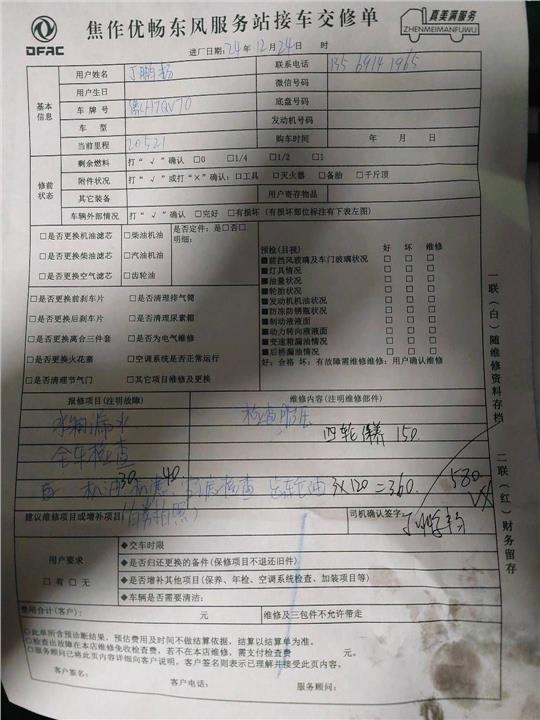 DFAC
焦作优畅东风服务站接车交修单
真美满服务
ZHENMEIMANFUWU
进厂日期: 24年 12月 24日 时
基本信息
用户姓名 丁鹏杨 联系电话 135 6914 1965
用户生日 微信号码
车 牌 号 豫LH7QV70 底盘号码
车 型 发动机号码
当前里程 20521 购车时间 年 月 日
修前状态
剩余燃料 打“ √ ”确认 □0 □1/4 □1/2 □1
附件状况 打“ √ ”或打“×”确认：□工具 □灭火器 □备胎 □千斤顶
其它装备 用户寄存物品
车辆外部情况 打“ √ ”确认 □完好 □有损坏（有损坏部位标注有下表左图）
□是否更换机油滤芯 □柴油机油 是否定件：是□否□
明细：
□是否更换柴油滤芯 □汽油机油
□是否更换空气滤芯 □齿轮油
□是否更换前刹车片 □是否清理排气筒
□是否更换后刹车片 □是否清理尿素箱
□是否更换离合三件套 □是否为电气维修
□是否更换火花塞 □空调系统是否正常运行
□是否清理节气门 □其它项目维修及更换
预检(目视) 好 坏 维修
■前挡风玻璃及车门玻璃状况 □ □ □
■灯具情况 □ □ □
■油量状况 □ □ □
■轮胎状况 □ □ □
■发动机机油状况 □ □ □
■防冻防锈瓶状况 □ □ □
■制动液液面 □ □ □
■动力转向液液面 □ □ □
■变速箱漏油情况 □ □ □
■后桥漏油情况 □ □ □
好：合格 坏：有故障需维修维修：用户确认维修
报修项目(注明故障) 维修内容(注明维修部件)
水箱漏水 检查
四轮保养 150
全车检查
机油30 机滤40 检查 3×120=360 530
建议维修项目或增补项目 司机确认签字：
用户要求
□ 有 □ 无
◆交车时限
◆是否归还更换的备件(保修项目不退还旧件)
◆是否增补其他项目(保养、年检、空调系统检查、加装项目等)
◆车辆是否需要清洁:
费用合计(客户): 元 维修及三包件不允许带走
○此单含所预诊断结果，预估费用及时间不做结算依据，结算以结算单为准。
○检查出故障在本店维修免收检查费，若不在本店维修，需支付检查费 元。
○服务顾问已将此页内容详细向客户说明，客户签名则表示已理解并接受此页内容。
客户签名: 客户电话: 服务顾问:
一联（白）随维修资料存档
二联（红）财务留存